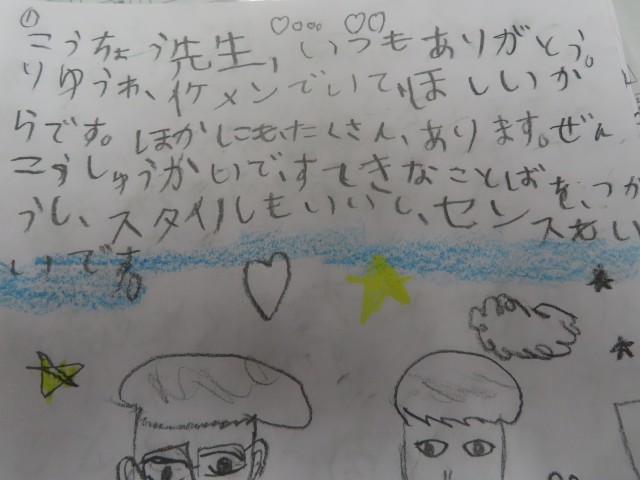 ①
こうちょう先生、いつもありがとう。
りゆうわ、イケメンでいて、ほしいか
らです。ほかにも、たくさん、あります。ぜん
こうしゅうかいで、すてきなことばを、つか
うし、スタイルもいいし、センスもい
いです。